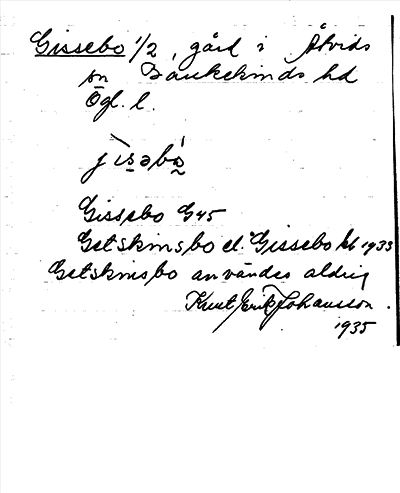 Gissebo 1/2, gård i Åtvids
sn Bankekinds hd
Ögl. l.
jìsəbò
Gissebo G45
Getskinsbo el. Gissebo kb 1933
Getskinsbo användes aldrig
Knut Erik Johansson.
1935